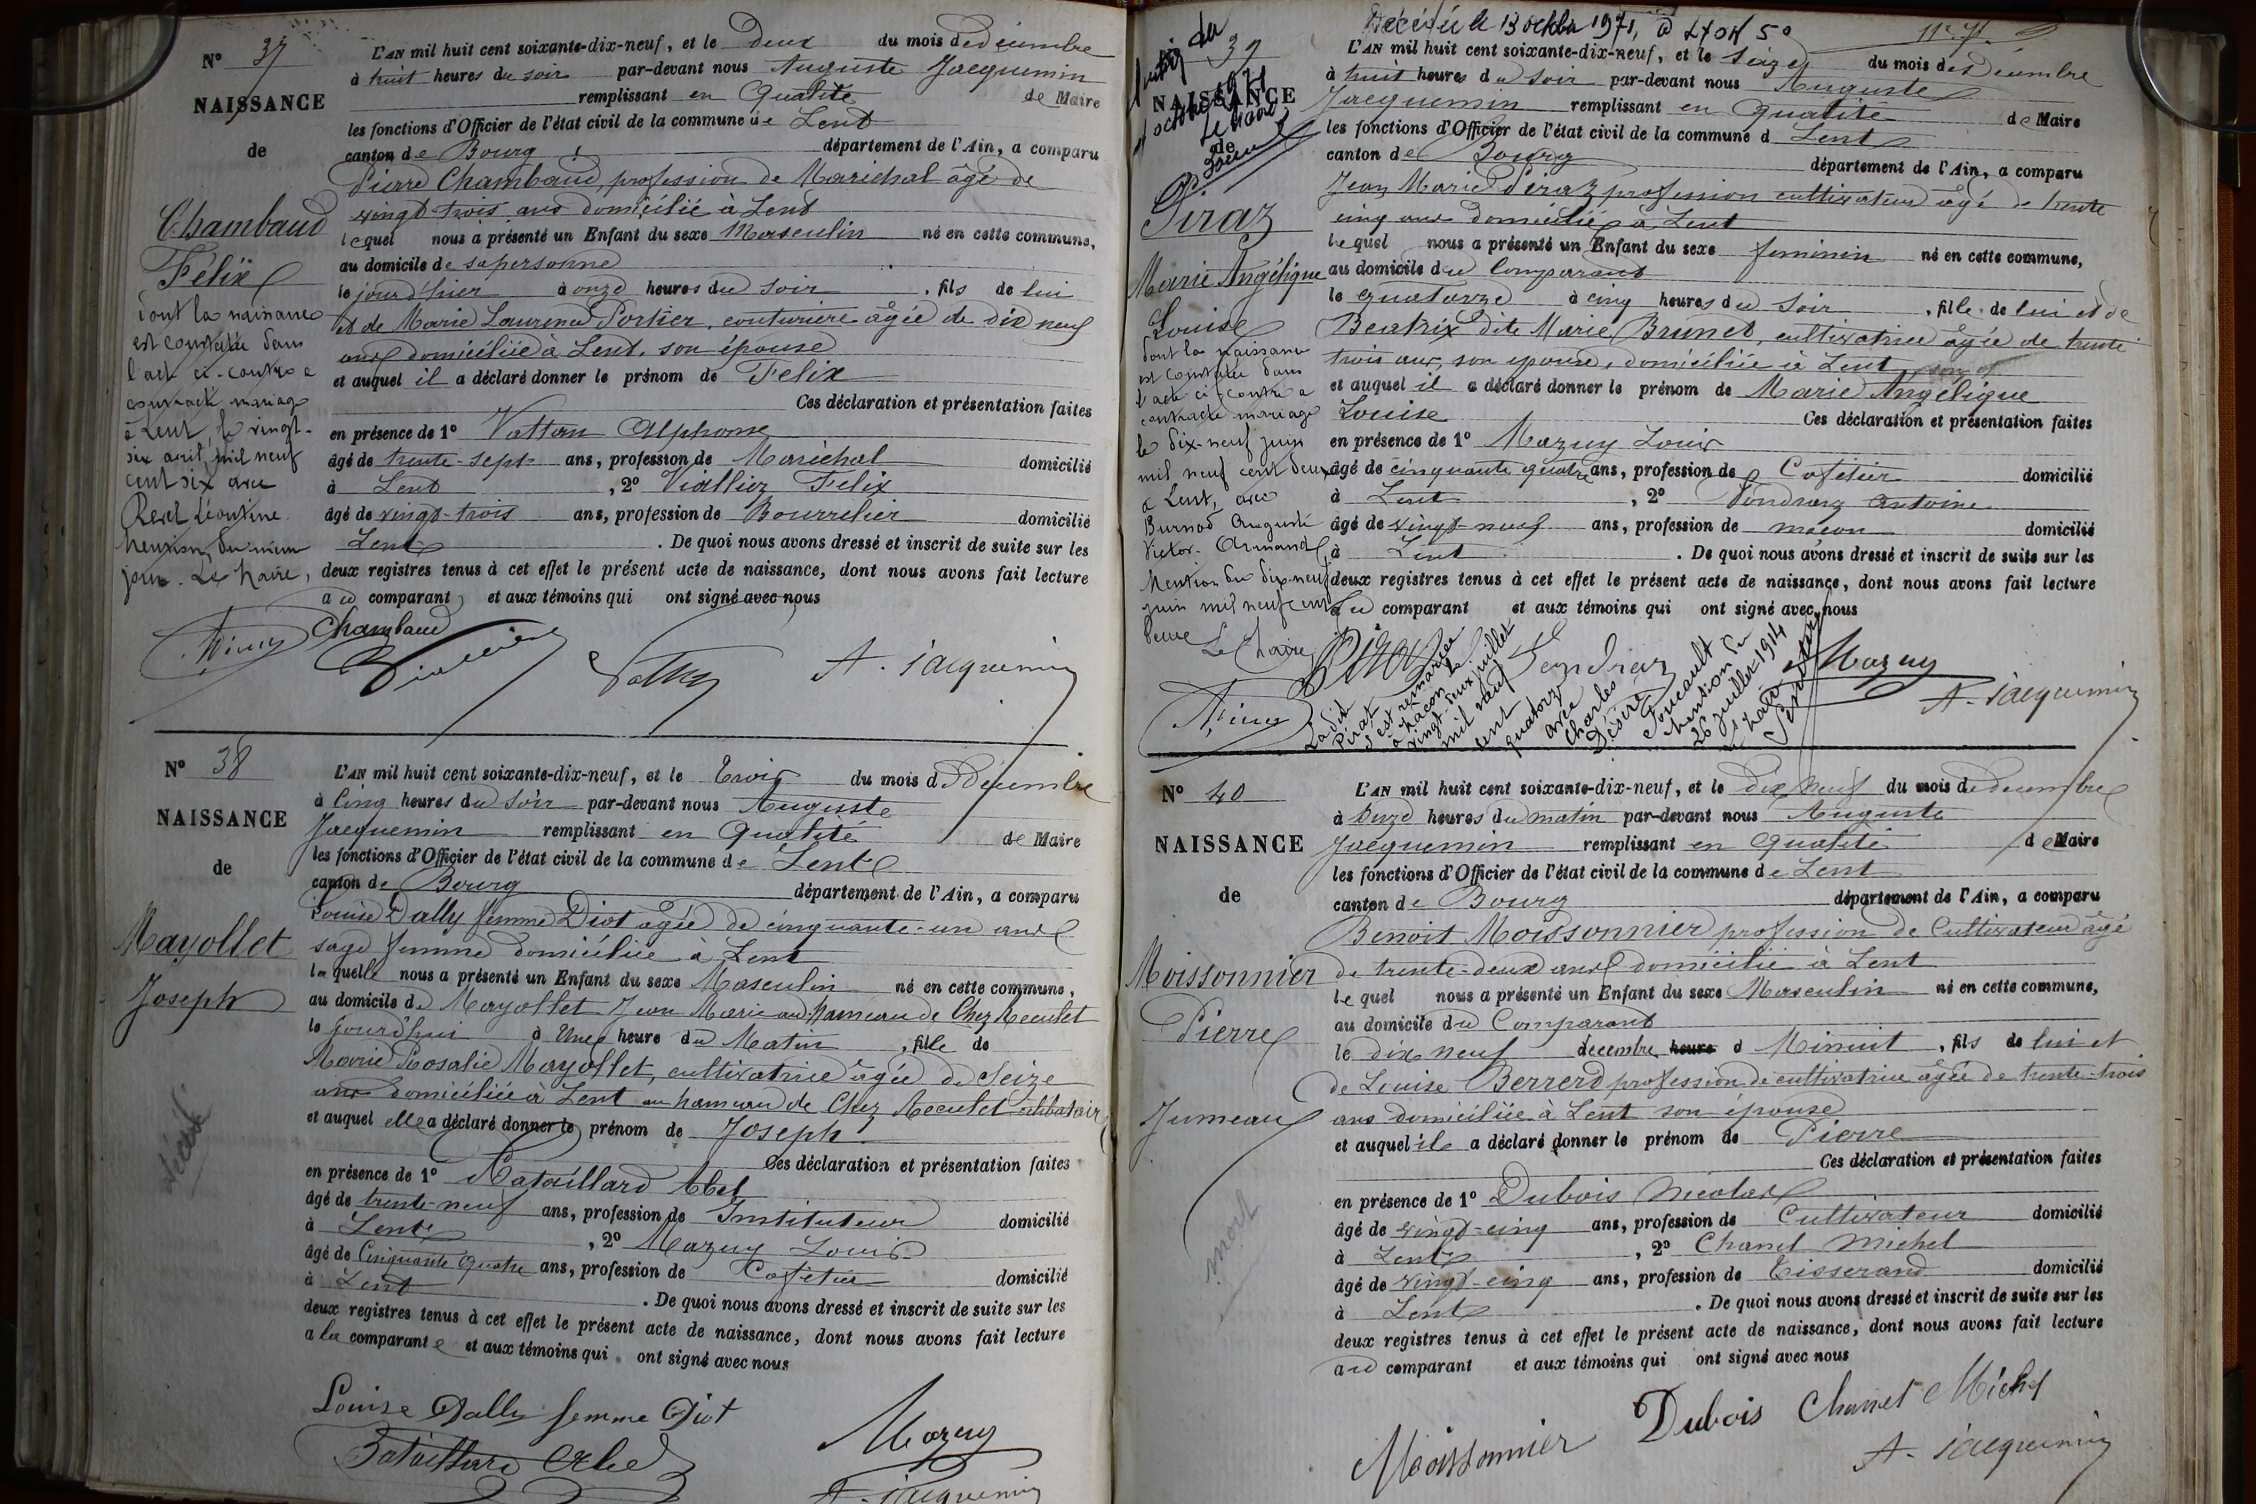 N° 37
NAISSANCE
de
Chambaud
Félix
dont la naissance
est constatée dans
l'acte ci-contre a
contracté mariage
à Lent, le vingt-
six avril mil neuf
cent six avec
Revel Léontine
Mention du même
jour. Le Maire,
L'AN mil huit cent soixante-dix-neuf, et le Deux du mois de décembre
à huit heures du soir par-devant nous Auguste Jacquemin
remplissant en Qualité de Maire
les fonctions d'Officier de l'état civil de la commune de Lent
canton de Bourg, département de l'Ain, a comparu
Pierre Chambaud, profession de Maréchal âgé de
vingt-trois ans domicilié à Lent
lequel nous a présenté un Enfant du sexe Masculin né en cette commune,
au domicile de sa personne
le jour d'hier à onze heures du soir, fils de lui
et de Marie Laurence Portier, couturière âgée de dix neuf
ans domiciliée à Lent, son épouse
et auquel il a déclaré donner le prénom de Felix
Ces déclaration et présentation faites
en présence de 1° Vattan Alphonse
âgé de trente-sept ans, profession de Maréchal domicilié
à Lent, 2° Viallier Felix
âgé de vingt-trois ans, profession de Bourrelier domicilié
Lent. De quoi nous avons dressé et inscrit de suite sur les
deux registres tenus à cet effet le présent acte de naissance, dont nous avons fait lecture
au comparant et aux témoins qui ont signé avec nous
Chambaud
Viallier
A. Jacquemin
N° 38
NAISSANCE
de
Mayollet
Joseph
décédé
L'AN mil huit cent soixante-dix-neuf, et le Trois du mois de Décembre
à Cinq heures du Soir par-devant nous Auguste
Jacquemin remplissant en Qualité de Maire
les fonctions d'Officier de l'état civil de la commune de Lent
canton de Bourg département de l'Ain, a comparu
Louise Dally femme Diot âgée de cinquante-un ans
sage femme domiciliée à Lent
laquelle nous a présenté un Enfant du sexe Masculin né en cette commune,
au domicile de Mayollet Jean Marie au hameau de Chez Reculet
le jourd'hui à Une heure du Matin, fils de
Marie Rosalie Mayollet, cultivatrice âgée de Seize
ans domiciliée à Lent au hameau de Chez Reculet célibataire
et auquel elle a déclaré donner le prénom de Joseph
Ces déclaration et présentation faites
en présence de 1° Bataillard Abel
âgé de trente-neuf ans, profession de Instituteur domicilié
à Lent, 2° Mazuy Louis
âgé de Cinquante quatre ans, profession de Cafetier domicilié
à Lent. De quoi nous avons dressé et inscrit de suite sur les
deux registres tenus à cet effet le présent acte de naissance, dont nous avons fait lecture
a la comparante et aux témoins qui ont signé avec nous
Louise Dally femme Diot
Bataillard Abel
Mazuy
A. Jacquemin
Décédée le 13 octobre 1971, à LYON 5°
39
NAISSANCE
de
Piraz
Marie Angélique
Louise
dont la naissance
est constatée dans
l'acte ci-contre a
contracté mariage
le dix-neuf juin
mil neuf cent deux
à Lent, avec
Burnod Auguste
Victor Armand
Mention du dix-neuf
juin mil neuf cent
deux Le Maire,
L'AN mil huit cent soixante-dix-neuf, et le Seize du mois de Décembre
à huit heures du Soir par-devant nous Auguste
Jacquemin remplissant en Qualité de Maire
les fonctions d'Officier de l'état civil de la commune d Lent
canton de Bourg département de l'Ain, a comparu
Jean Marie Piraz profession cultivateur âgé de trente
cinq ans domicilié à Lent
lequel nous a présenté un Enfant du sexe feminin né en cette commune,
au domicile du Comparant
le quatorze à cinq heures du Soir, fille de lui et de
Beatrix dite Marie Brunet, cultivatrice âgée de trente
trois ans, son épouse, domiciliée à Lent
et auquel il a déclaré donner le prénom de Marie Angélique
Louise Ces déclaration et présentation faites
en présence de 1° Mazuy Louis
âgé de cinquante quatre ans, profession de Cafetier domicilié
à Lent, 2° Vendraz Antoine
âgé de vingt-neuf ans, profession de maçon domicilié
à Lent. De quoi nous avons dressé et inscrit de suite sur les
deux registres tenus à cet effet le présent acte de naissance, dont nous avons fait lecture
au comparant et aux témoins qui ont signé avec nous
Piraz
Mazuy
A. Jacquemin
La dite
Pirat
s'est remariée
à Mâcon le
vingt-deux juillet
mil neuf
cent
quatorze
avec
Charles
Désiré
Foucault
Mention du
26 juillet 1914
Le Maire
N° 40
NAISSANCE
de
Moissonnier
Pierre
Jumeau
mort
L'AN mil huit cent soixante-dix-neuf, et le Dix neuf du mois de décembre
à Onze heures du matin par-devant nous Auguste
Jacquemin remplissant en Qualité de Maire
les fonctions d'Officier de l'état civil de la commune de Lent
canton de Bourg département de l'Ain, a comparu
Benoit Moissonnier profession de Cultivateur âgé
de trente-deux ans domicilié à Lent
lequel nous a présenté un Enfant du sexe Masculin né en cette commune,
au domicile du Comparant
le dix neuf décembre heure à Minuit, fils de lui et
de Louise Berrerd profession de cultivatrice âgée de trente-trois
ans domiciliée à Lent son épouse
et auquel il a déclaré donner le prénom de Pierre
Ces déclaration et présentation faites
en présence de 1° Dubois Nicolas
âgé de vingt-cinq ans, profession de Cultivateur domicilié
à Lent, 2° Chanel Michel
âgé de vingt-cinq ans, profession de Tisserand domicilié
à Lent. De quoi nous avons dressé et inscrit de suite sur les
deux registres tenus à cet effet le présent acte de naissance, dont nous avons fait lecture
au comparant et aux témoins qui ont signé avec nous
Moissonnier Dubois Chanel Michel
A. Jacquemin